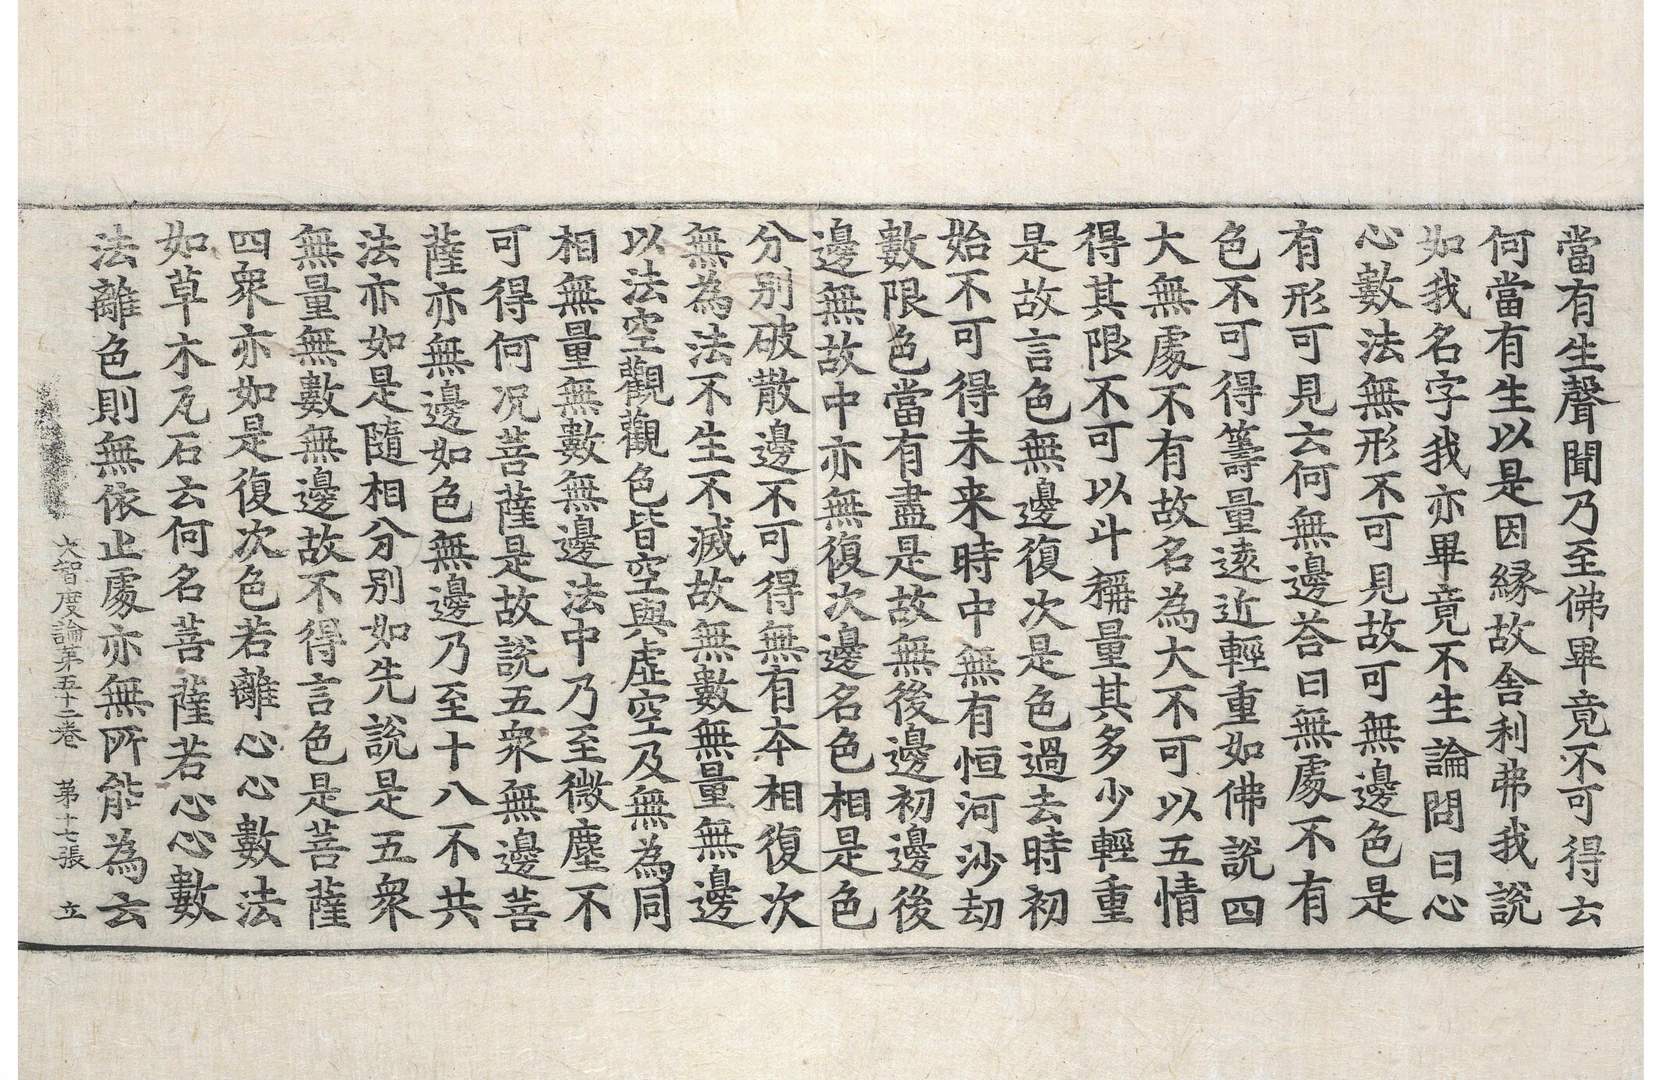 當有生聲聞乃至佛畢竟不可得云
何當有生以是因縁故舍利弗我說
如我名字我亦畢竟不生論問曰心
心數法無形不可見故可無邊色是
有形可見云何無邊荅曰無處不有
色不可得籌量遠近輕重如佛說四
大無處不有故名為大不可以五情
得其限不可以斗稱量其多少輕重
是故言色無邊復次是色過去時初
始不可得未来時中無有恒河沙劫
數限色當有盡是故無後邊初邊後
邊無故中亦無復次邊名色相是色
分别破散邊不可得無有夲相復次
無為法不生不滅故無數無量無邊
以法空觀觀色皆空與虛空及無為同
相無量無數無邊法中乃至微塵不
可得何況菩薩是故說五衆無邊菩
薩亦無邊如色無邊乃至十八不共
法亦如是隨相分别如先說是五衆
無量無數無邊故不得言色是菩薩
四衆亦如是復次色若離心心數法
如草木瓦石云何名菩薩若心心數
法離色則無依止處亦無所能為云
大智度論第五十二卷 第十七張 立